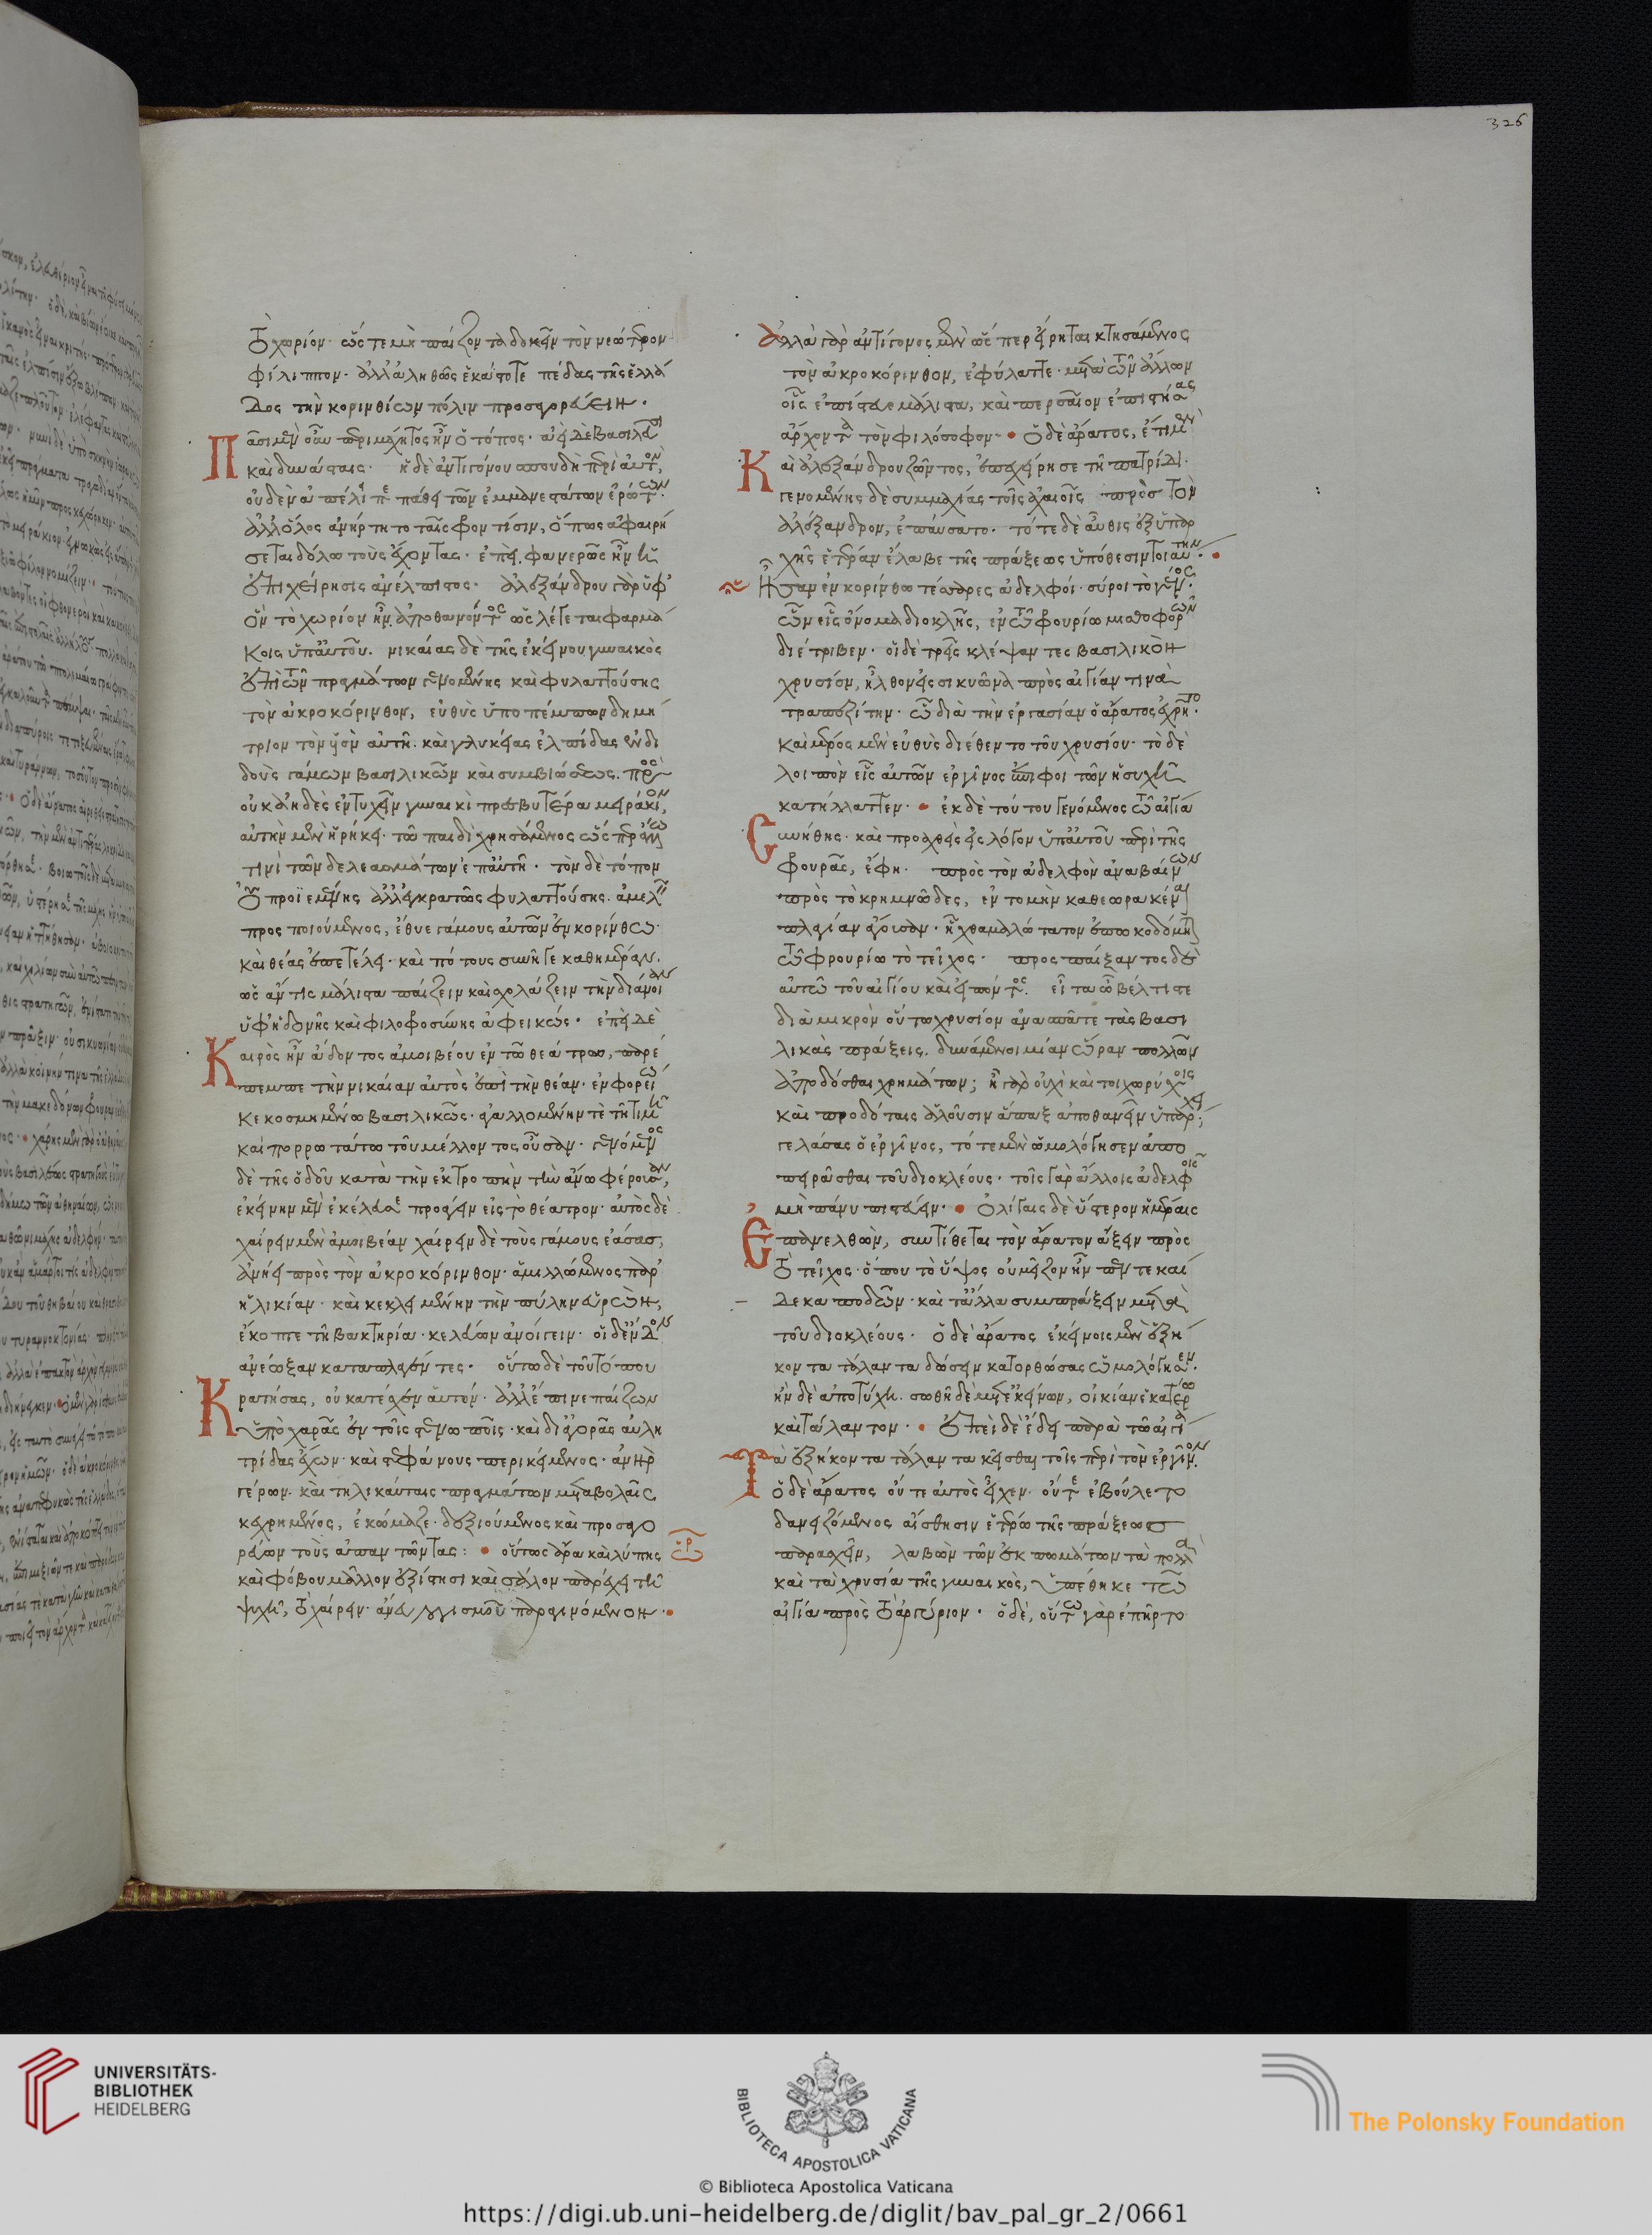 τὸ χωρίον· ὥστε μὴ παίζοντα δοκεῖν τὸν νεώτερον
φίλιππον· ἀλλ' ἀληθῶς ἑκάστοτε πέδας τῆς ἑλλά
δος τὴν κορινθίων πόλιν προσαγορεύειν.
Πᾶσι μὲν οὖν περιμάχητος ἦν ὁ τόπος· ἀεὶ δὲ βασιλεῦσι
καὶ δυνάσταις. ἡ δὲ ἀντιγόνου σπουδὴ περὶ αὐτόν,
οὐδὲν ἀπέλιπε πάθει τῶν ἐμμανεστάτων ἐρώτων·
ἀλλ' ὅλος ἀνήρτητο ταῖς φροντίσιν, ὅπως ἀφαιρή
σεται δόλω τοὺς ἔχοντας· ἐπεὶ φανερῶς ἦν ἡ
ἐπιχείρησις ἀνέλπιστος. ἀλεξάνδρου γὰρ ὑφ'
ὃν τὸ χωρίον ἦν, ἀποθανόντος ὡς λέγεται φαρμά
κοις ὑπ' αὐτοῦ. νικαίας δὲ τῆς ἐκείνου γυναικὸς
ἐπὶ τῶν πραγμάτων γενομένης καὶ φυλαττούσης
τὸν ἀκροκόρινθον, εὐθὺς ὑποπέμπων δημή
τριον τὸν υἱὸν αὐτῆ. καὶ γλυκείας ἐλπίδας ἐνδι
δοὺς γάμων βασιλικῶν καὶ συμβιώσεως. πρὸς
οὐκ ἀηδὲς ἐντυχεῖν γυναικὶ πρεσβυτέρα μειράκιον,
αὐτὴν μὲν ἡρήκει· τῶ παιδὶ χρησάμενος ὥσπερ ἄλλω
τινὶ τῶν δελεασμάτων ἐπ' αὐτῆ. τὸν δὲ τόπον
οὐ προϊεμένης ἀλλ' ἐγκρατῶς φυλαττούσης. ἀμελεῖν
προσποιούμενος, ἔθυε γάμους αὐτῶν ἐν κορίνθω·
καὶ θέας ἐπετέλει· καὶ πότους συνῆγε καθ' ἡμέραν.
ὡς ἄν τις μάλιστα παίζειν καὶ σχολάζειν τὴν διάνοιαν
ὑφ' ἡδονῆς καὶ φιλοφροσύνης ἀφεικώς. ἐπεὶ δὲ
Καιρὸς ἦν ἄδοντος ἀμοιβέου ἐν τῶ θεάτρω, παρέ
πεμπε τὴν νίκαιαν αὐτὸς ἐπὶ τὴν θέαν· ἐν φορείω
κεκοσμημένω βασιλικῶς· ἀγαλλομένην τε τῆ τιμῆ
καὶ πορρωτάτω τοῦ μέλλοντος οὖσαν. γενόμενος
δὲ τῆς ὁδοῦ κατὰ τὴν ἐκτροπὴν τὴν ἄνω φέρουσαν,
ἐκείνην μὲν ἐκέλευσε προάγειν εἰς τὸ θέατρον· αὐτὸς δὲ
χαίρειν μὲν ἀμοιβέα χαίρειν δὲ τοὺς γάμους ἐάσας,
ἀνήει πρὸς τὸν ἀκροκόρινθον· ἁμιλλώμενος παρ'
ἡλικίαν· καὶ κεκλειμένην τὴν πύλην εὑρὼν,
ἔκοπτε τῆ βακτηρία· κελεύων ἀνοίγειν. οἱ δ' ἔνδον
ἀνέωξαν καταπλαγέντες. οὕτω δὲ τοῦ τόπου
Κρατήσας, οὐ κατέσχεν αὑτόν· ἀλλ' ἔπινε παίζων
ὑπὸ χαρᾶς ἐν τοῖς στενωποῖς· καὶ δι' ἀγορᾶς αὐλη
τρίδας ἔχων· καὶ στεφάνους περικείμενος· ἀνὴρ
γέρων. καὶ τηλικαύταις πραγμάτων μεταβολαῖς
κεχρημένος, ἐκώμαζε· δεξιούμενος καὶ προσαγο
ρεύων τοὺς ἀπαντῶντας: οὕτως ἄρα καὶ λύπης
καὶ φόβου μᾶλλον ἐξίστησι καὶ σάλον παρέχει τῆ
ψυχῆ, τὸ χαίρειν· ἄνευ λογισμοῦ παραγινόμενον.
Ἀλλὰ γὰρ ἀντίγονος μὲν ὥσπερ εἴρηται κτησάμενος
τὸν ἀκροκόρινθον, ἐφύλαττε· μετὰ τῶν ἄλλων
οἷς ἐπίστευε μάλιστα, καὶ περσαῖον ἐπιστήσας
ἄρχοντα τὸν φιλόσοφον. Ὁ δὲ ἄρατος, ἔτι μὲν
Καὶ ἀλεξάνδρου ζῶντος, ἐπεχείρησε τῆ πατρίδι.
γενομένης δὲ συμμαχίας τοῖς ἀχαιοῖς πρὸς τὸν
ἀλέξανδρον, ἐπαύσατο. τότε δὲ αὖθις ἐξ ὑπαρ
χῆς ἑτέραν ἔλαβε τῆς πράξεως ὑπόθεσιν τοιαύτην.
Ἦσαν ἐν κορίνθω τέσσαρες ἀδελφοί· σύροι τὸ γένος·
ὧν εἷς ὄνομα διοκλῆς, ἐν τῶ φρουρίω μισθοφορῶν
διέτριβεν. οἱ δὲ τρεῖς κλέψαντες βασιλικὸν
χρυσίον, ἦλθον εἰς σικυῶνα πρὸς αἰγίαν τινὰ
τραπεζίτην. ὧ διὰ τὴν ἐργασίαν ὁ ἄρατος ἐχρῆτο.
καὶ μέρος μὲν εὐθὺς διέθεντο τοῦ χρυσίου· τὸ δὲ
λοιπὸν εἷς αὐτῶν ἐργῖνος ἐπιφοιτῶν ἡσυχῆ
κατήλλαττεν. ἐκ δὲ τούτου γενόμενος τῶ αἰγία
Συνήθης· καὶ προαχθεὶς εἰς λόγον ὑπ' αὐτοῦ περὶ τῆς
φρουρᾶς, ἔφη. πρὸς τὸν ἀδελφὸν ἀναβαίνων
πρὸς τὸ κρημνῶδες, ἐντομὴν καθεωρακέναι
πλαγίαν ἄγουσαν· ἧ χθαμαλώτατον ἐπωκοδόμηται
τῶ φρουρίω τὸ τεῖχος. προσπαίξαντος δὲ
αὐτῶ τοῦ αἰγίου καὶ εἰπόντος. εἶτα ὦ βέλτιστε
διὰ μικρὸν οὕτω χρυσίον ἀνασπᾶτε τὰς βασι
λικὰς πράξεις. δυνάμενοι μίαν ὥραν πολλῶν
ἀποδόσθαι χρημάτων; ἦ γὰρ οὐχὶ καὶ τοιχωρύχοις
καὶ προδόταις ἁλοῦσιν ἅπαξ ἀποθανεῖν ὑπάρχει;
γελάσας ὁ ἐργῖνος, τότε μὲν ὡμολόγησεν ἀπο
πειρᾶσθαι τοῦ διοκλέους. τοῖς γὰρ ἄλλοις ἀδελφοῖς
μὴ πάνυ πιστεύειν. Ὀλίγαις δὲ ὕστερον ἡμέραις
Ἐπανελθὼν, συντίθεται τὸν ἄρατον ἄξειν πρὸς
τὸ τεῖχος· ὅπου τὸ ὕψος οὐ μεῖζον ἦν πεντεκαί
δεκα ποδῶν· καὶ τἆλλα συμπράξειν μετὰ
τοῦ διοκλέους. ὁ δὲ ἄρατος ἐκείνοις μὲν ἑξή
κοντα τάλαντα δώσειν κατορθώσας ὡμολόγησεν.
ἢν δὲ ἀποτύχη. σωθῆ δὲ μετ' ἐκείνων, οἰκίαν ἑκατέρω
καὶ τάλαντον. Ἐπεὶ δὲ ἔδει παρὰ τῶ αἰγία
Τὰ ἑξήκοντα τάλαντα κεῖσθαι τοῖς περὶ τὸν ἐργῖνον.
ὁ δὲ ἄρατος οὔτε αὐτὸς εἶχεν. οὔτε ἐβούλετο
δανειζόμενος αἴσθησιν ἑτέρω τῆς πράξεως
παρασχεῖν, λαβὼν τῶν ἐκπωμάτων τὰ πολλὰ
καὶ τὰ χρυσία τῆς γυναικὸς, ὑπέθηκε τῶ
αἰγία πρὸς τὸ ἀργύριον. ὁ δὲ, οὕτω γὰρ ἐπῆρτο
326
UNIVERSITÄTS-
BIBLIOTHEK
HEIDELBERG
BIBLIOTECA APOSTOLICA VATICANA
The Polonsky Foundation
© Biblioteca Apostolica Vaticana
https://digi.ub.uni-heidelberg.de/diglit/bav_pal_gr_2/0661